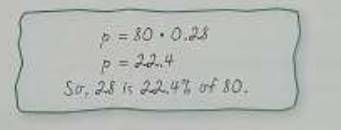 p = 80 • 0.28
p = 22.4
So, 28 is 22.4% of 80.